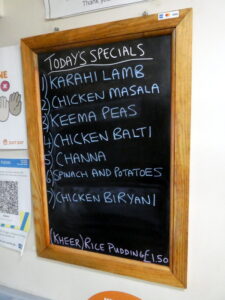 Thank you
TODAY'S SPECIALS
1) KARAHI LAMB
2) CHICKEN MASALA
3) KEEMA PEAS
4) CHICKEN BALTI
5) CHANNA
6) SPINACH AND POTATOES
7) CHICKEN BIRYANI
(KHEER) RICE PUDDING £1.50
JUST EAT